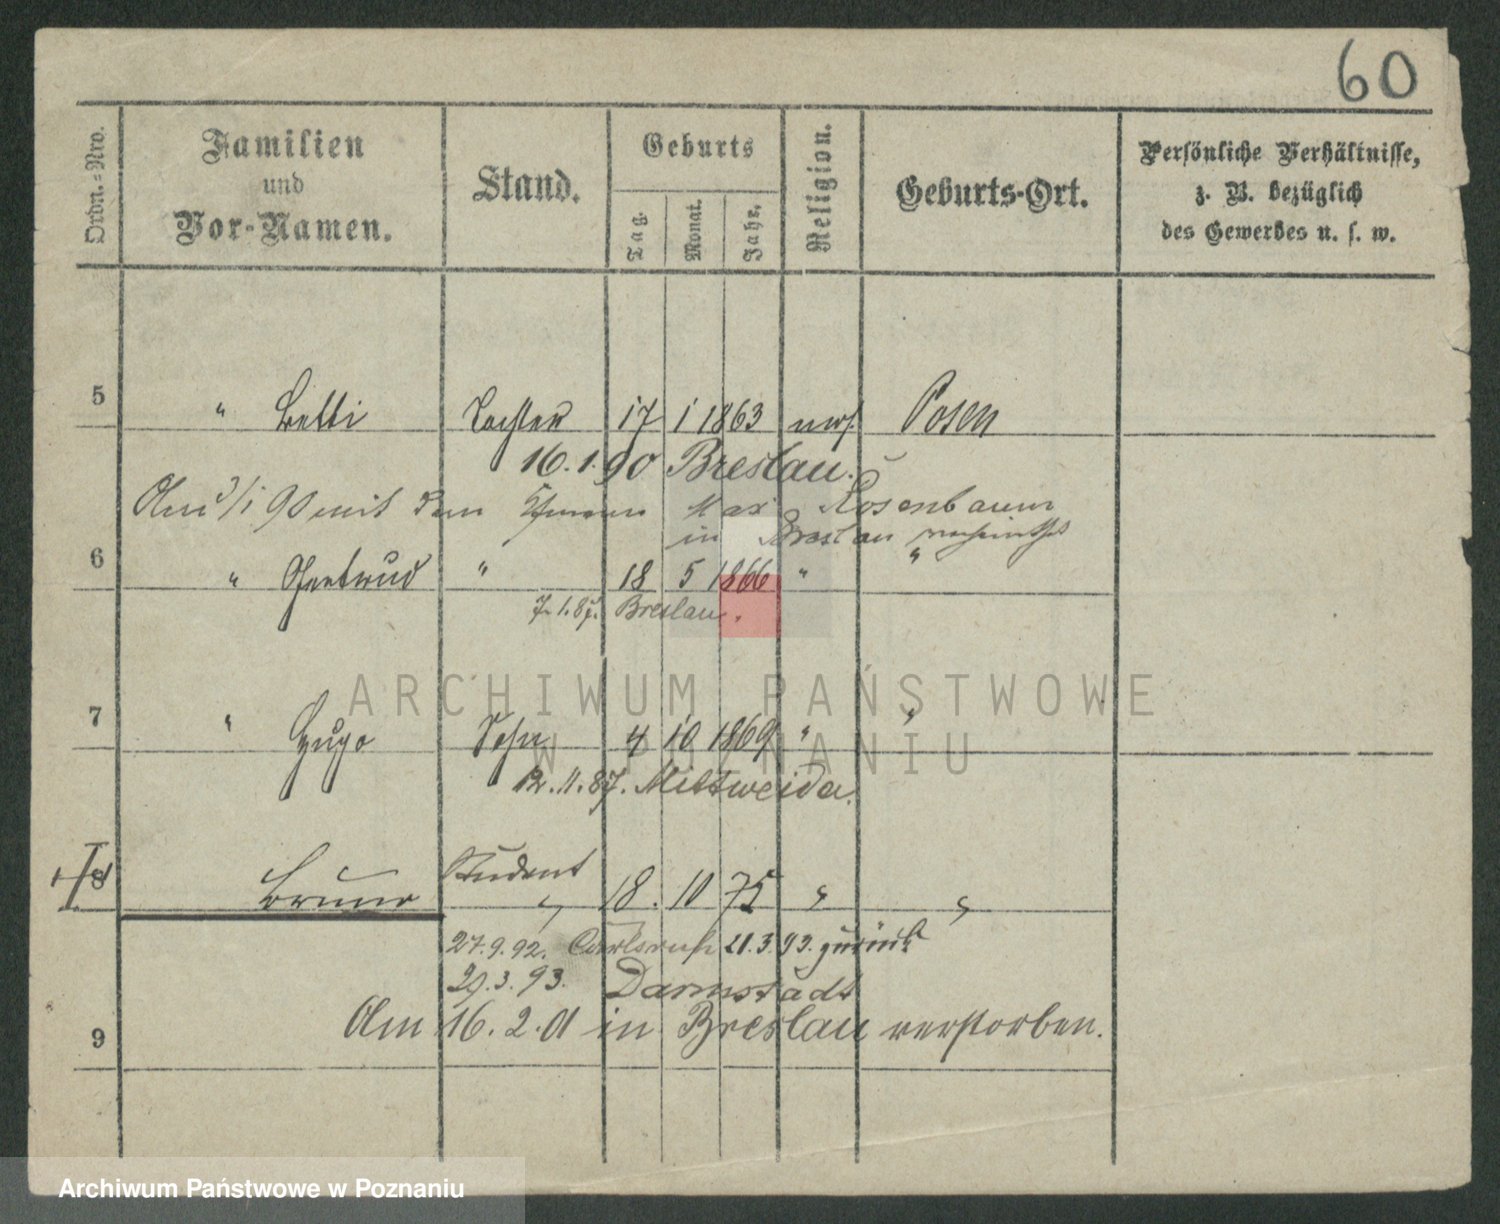 60
Ordn.=Nro.
Familien
und
Vor-Namen.
Stand.
Geburts
Tag.
Monat.
Jahr.
Religion.
Geburts-Ort.
Persönliche Verhältnisse,
z. B. bezüglich
des Gewerbes u. s. w.
5 " Betti Tochter 17 1 1863 mos. Posen
16.1.90 Breslau.
Am 3/1 90 mit dem Max Rosenbaum
in Breslau
6 " Gertrud " 18 5 1866 " "
7.1.87. Breslau.
ARCHIWUM PAŃSTWOWE
W POZNANIU
7 " Hugo Sohn 4 10 1869 " "
12.11.87. Mittweida.
Student
8 Bruno " 18. 10 75 " "
27.9.92. Carlsruhe 21.3.93. zurück
29.3.93. Darmstadt
Am 16.2.01 in Breslau verstorben.
9
Archiwum Państwowe w Poznaniu